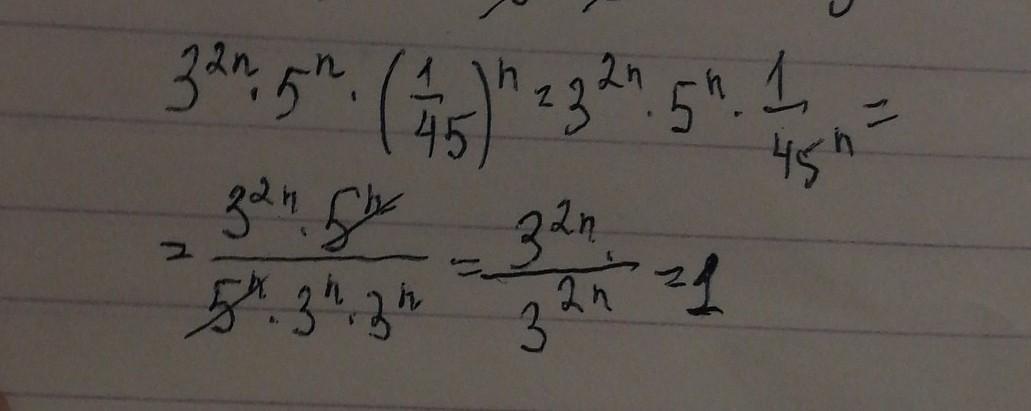 3^{2n} · 5^n · (1/45)^n = 3^{2n} · 5^n · 1/45^n =
= (3^{2n} · 5^n)/(5^n · 3^n · 3^n) = 3^{2n} ·/3^{2n} = 1